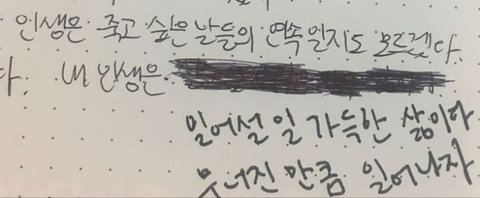 인생은 죽고 싶은 날들의 연속 일지도 모르겠다.
다. 내 인생은
일어설 일 가득한 삶이다
무너진 만큼 일어나자